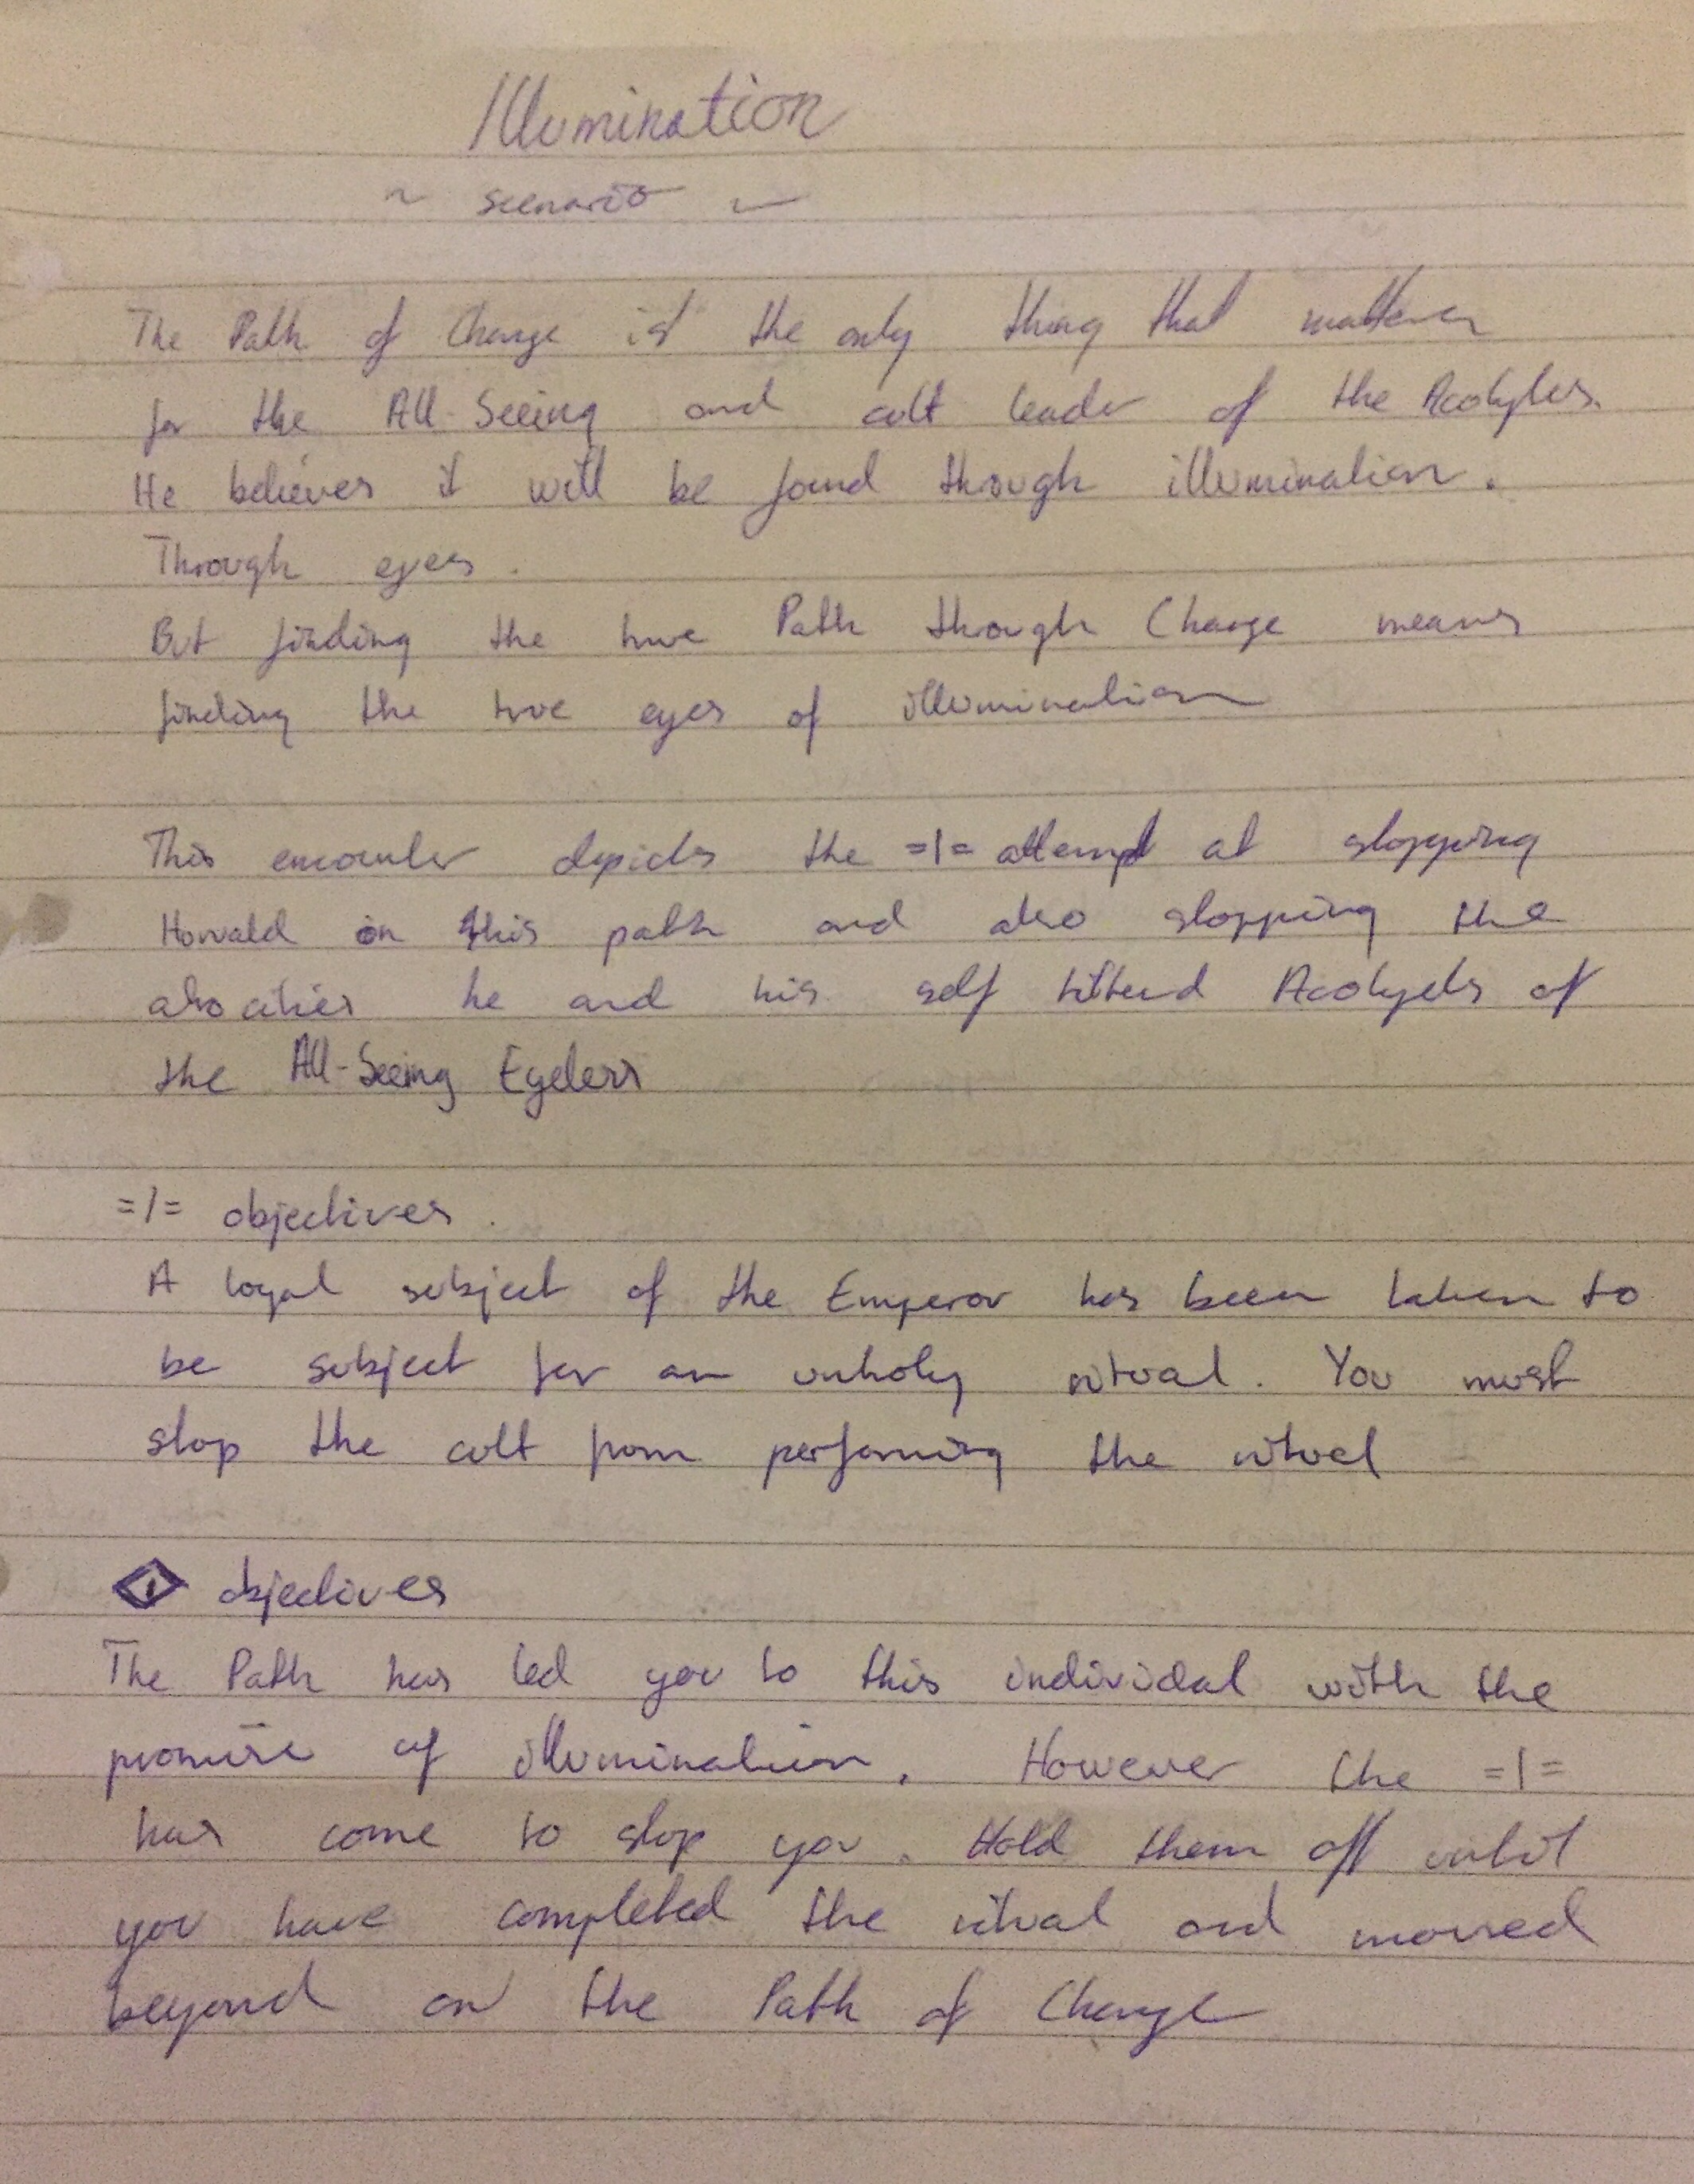 Illumination
~ scenario ~
The Path of Change is the only thing that matters
for the All-Seeing and cult leader of the Acolytes.
He believes it will be found through illumination.
Through eyes.
But finding the true Path through Change means
finding the true eyes of illumination
This encounter depicts the =|= attempt at stopping
on this path and also stopping the
he and his self Acolytes of
the All-Seeing Eyeless
=|= objectives.
A loyal subject of the Emperor has been taken to
be subject for an unholy ritual. You must
stop the cult from performing the ritual
objectives
The Path has led you to this individal with the
promise of illumination. However the =|=
has come to stop you. Hold them off until
you have completed the ritual and moved
beyond on the Path of Change